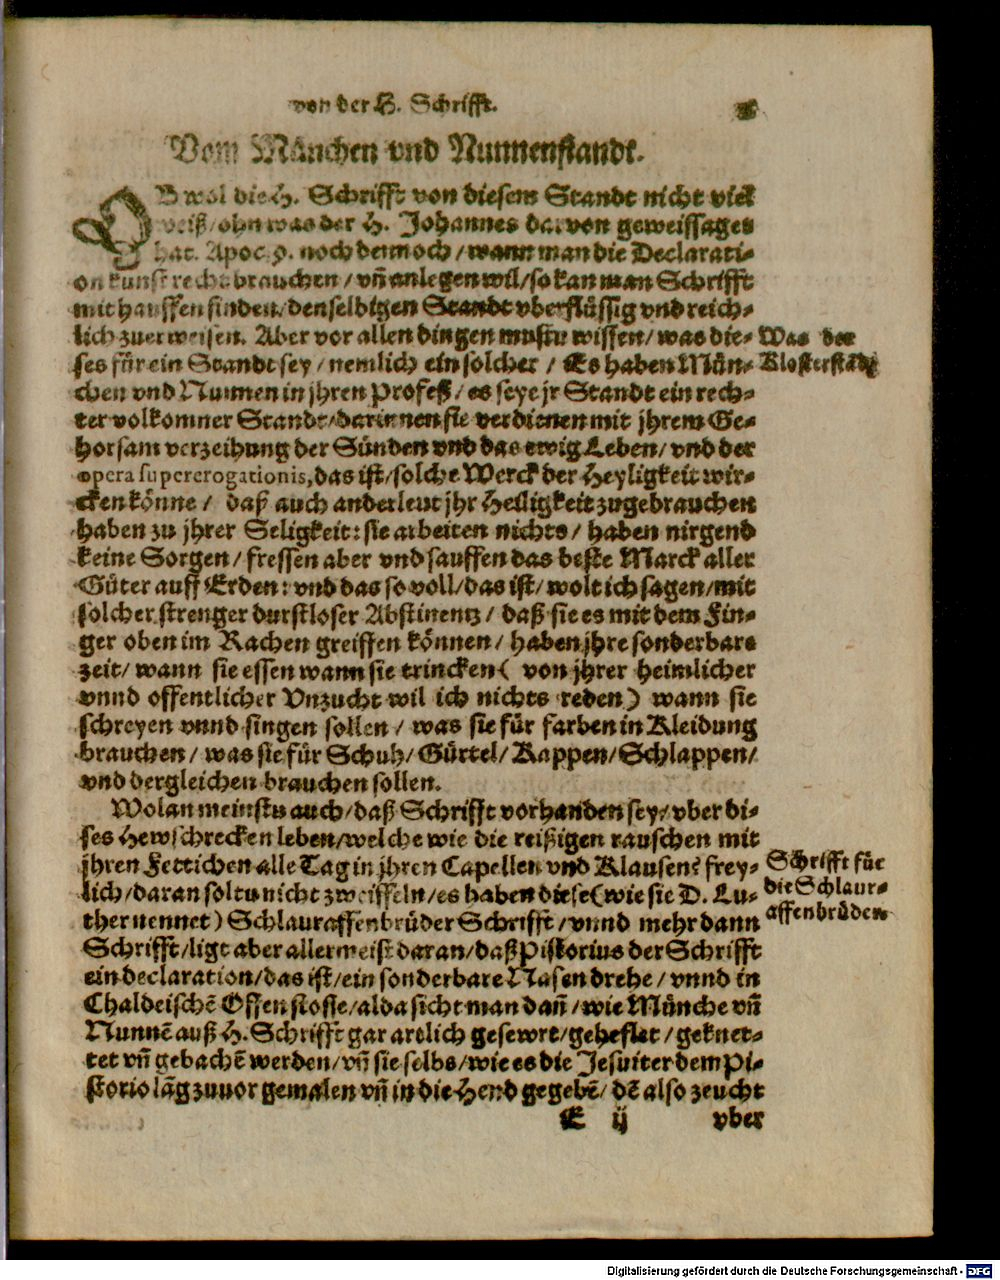 von der H. Schrifft.
Vom München vnd Nunnenstandt.
OB wol die H. Schrifft von diesem Standt nicht viel
weiß/ohn was der H. Johannes darvon geweissaget
hat. Apoc. 9. noch dennoch/wann man die Declarati-
on kunstrecht brauchen/vñ anlegen wil/so kan man Schrifft
mit hauffen finden/denselbigen Standt vberflüssig vnd reich-
lich zu erweisen. Aber vor allen dingen mustu wissen/was die-
ses für ein Standt sey/nemlich ein solcher/Es haben Mün-
chen vnd Nunnen in jhren Profeß/es seye jr Standt ein rech-
ter volkomner Standt/darinnen sie verdienen mit jhrem Ge-
horsam verzeihung der Sünden vnd das ewig Leben/vnd der
opera supererogationis, das ist/solche Werck der Heyligkeit wir-
cken könne/ daß auch ander leut jhr Heiligkeit zugebrauchen
haben zu jhrer Seligkeit: sie arbeiten nichts/ haben nirgend
keine Sorgen/fressen aber vnd sauffen das beste Marck aller
Güter auff Erden: vnd das so voll/das ist/wolt ich sagen/mit
solcher strenger durstloser Abstinentz/ daß sie es mit dem Fin-
ger oben im Rachen greiffen können/haben jhre sonderbare
zeit/wann sie essen wann sie trincken( von jhrer heimlicher
vnnd offentlicher Vnzucht wil ich nichts reden) wann sie
schreyen vnnd singen sollen/was sie für farben in Kleidung
brauchen/was sie für Schuh/Gürtel/Kappen/Schlappen/
vnd dergleichen brauchen sollen.
Wolan meinstu auch/daß Schrifft vorhanden sey/vber di-
ses Hewschrecken leben/welche wie die reißigen rauschen mit
jhren Fettichen alle Tag in jhren Capellen vnd Klausen? frey-
lich/daran soltu nicht zweiffeln/es haben diese(wie sie D. Lu-
ther nennet) Schlauraffenbrüder Schrifft/vnnd mehr dann
Schrifft/ligt aber allermeist daran/daß Pistorius der Schrifft
ein declaration/das ist/ein sonderbare Nasen drehe/vnnd in
Chaldeischē Offen stosse/alda sicht man dañ/wie Münche vñ
Nunnē auß H. Schrifft gar artlich gesewrt/geheflet/geknet-
tet vñ gebachē werden/vñ sie selbs/wie es die Jesuiter dem Pi-
storio lāg zuuor gemalen vñ in die Hend gegebē/dē also zeucht
E ij vber
Was der
Klosterstādt
Schrifft für
die Schlaur-
affenbrüder
Digitalisierung gefördert durch die Deutsche Forschungsgemeinschaft - DFG